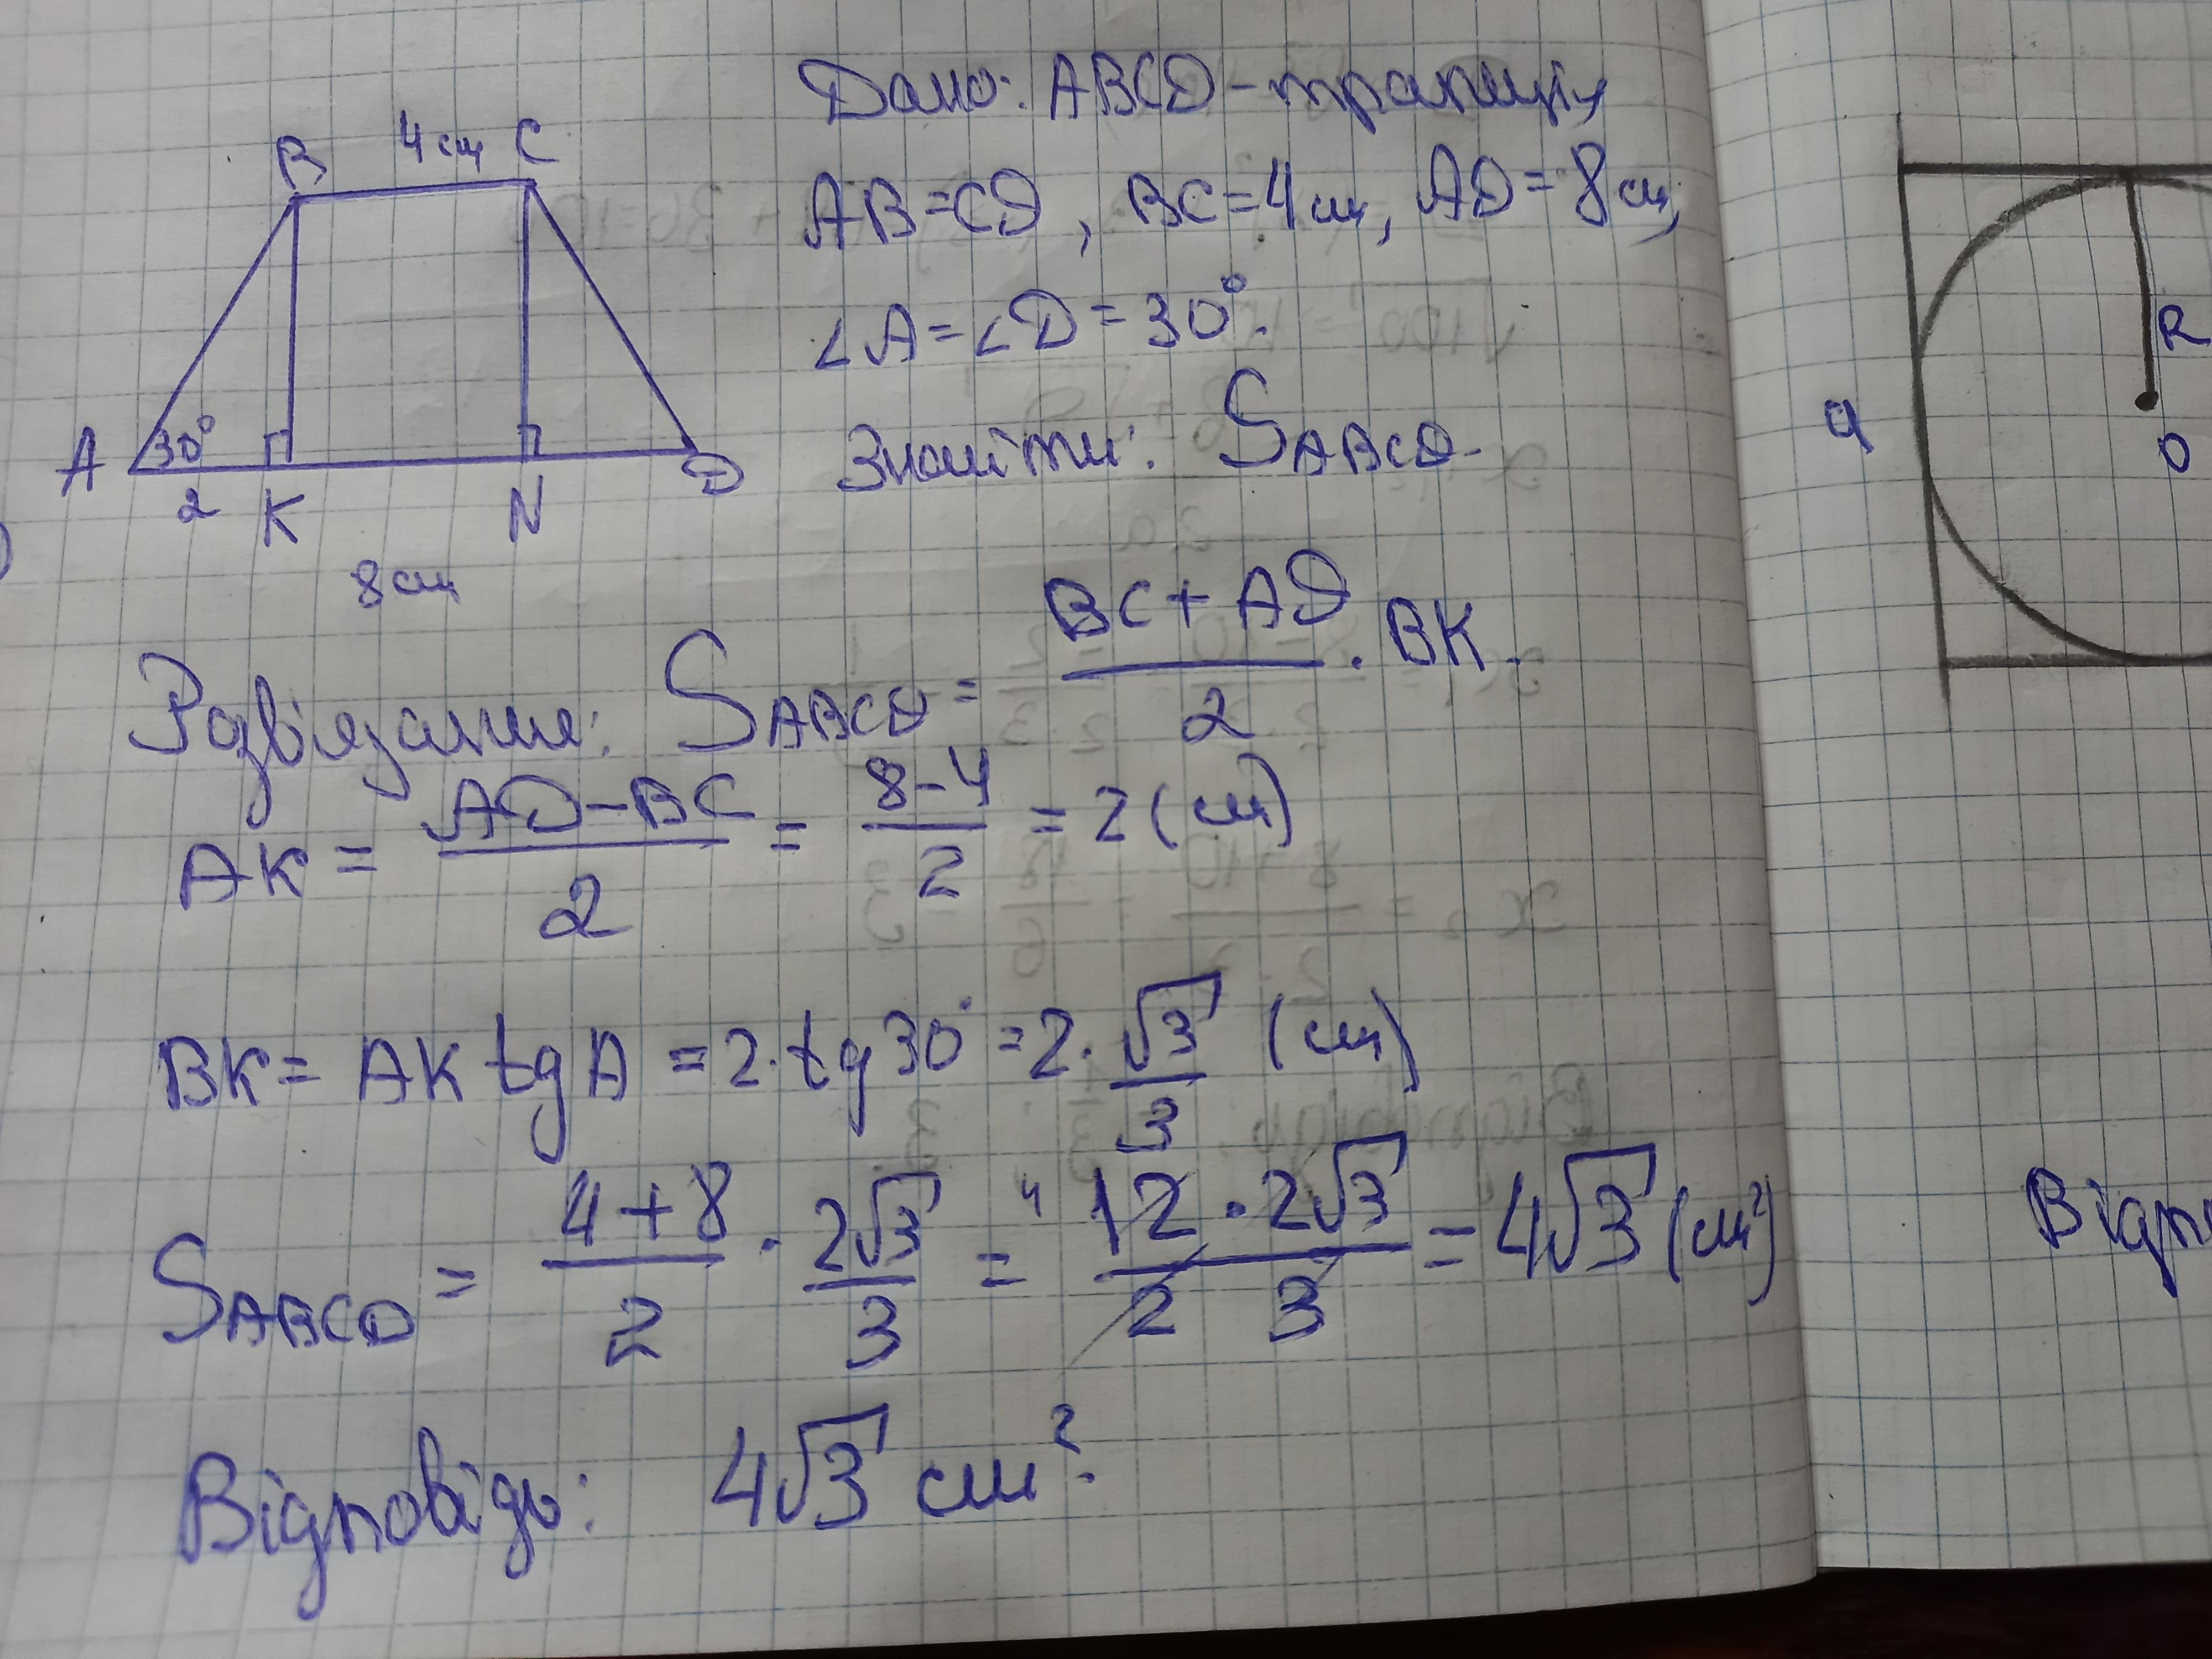 B 4 см C
A 30° D
2 K N
8 см
Дано: ABCD - трапеція
AB = CD, BC = 4 см, AD = 8 см,
∠A = ∠D = 30°.
Знайти: S_ABCD.
Розв'язання: S_ABCD = (BC + AD)/2 · BK.
AK = (AD - BC)/2 = (8 - 4)/2 = 2 (см)
BK = AK tg A = 2 · tg 30° = 2 · √3/3 (см)
S_ABCD = (4 + 8)/2 · 2√3/3 = ⁴ (12 · 2√3)/(2 3) = 4√3 (см²)
Відповідь: 4√3 см².
a
R
O